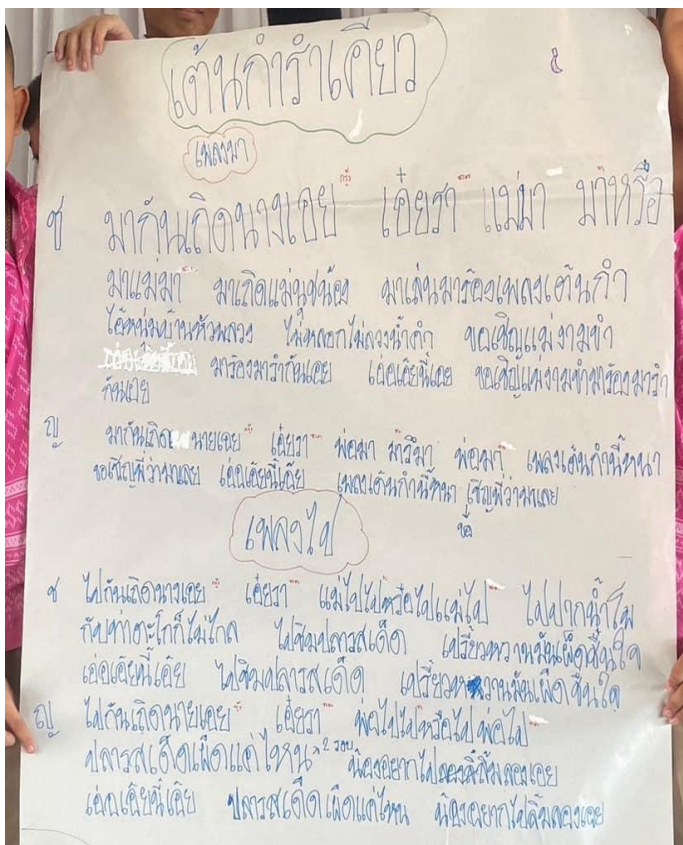 เต้นกำรำเคียว
๕
เพลงมา
ช มากันเถิดนางเอย เอ๋ยรา แม่มา มาหรือ
มาแม่มา มาเถิดแม่นุชน้อง มาเล่นมาร้องเพลงเต้นกำ
ไอ้หนุ่มบ้านหัวพลวง ไม่หลอกไม่ลวงน้ำคำ ขอเชิญแม่งามขำ
มาร้องมารำกันเอย เอ่อเอ้ยนี่เอย ขอเชิญแม่งามขำมาร้องมารำ
กันเอย
ญ มากันเถิด นายเอย เอ๋ยรา พ่อมา มารึมา พ่อมา เพลงเต้นกำนี้หนา
ขอเชิญพี่ว่ามาเลย เอ่อเอ้ยนี่เอ้ย เพลงเต้นกำนี้หนา เชิญพี่ว่ามาเลย
ขอ
เพลงไป
ช ไปกันเถิดนางเอย เอ๋ยรา แม่ไปไปหรือไปแม่ไป ไปปากน้ำโพ
กับท่าตะโกก็ไม่ไกล ไปชิมปลารสเด็ด เปรี้ยวหวานมันเผ็ดชื่นใจ
เอ่อเอ้ยนี่เอ้ย ไปชิมปลารสเด็ด เปรี้ยวหวานมันเผ็ดชื่นใจ
ญ ไปกันเถิดนายเอย เอ๋ยรา พ่อไปไปหรือไปพ่อไป
ปลารสเด็ดเผ็ดแค่ไหน 2 รอบ น้องอยากไปลองลิ้มลองเอย
เอ่อเอ้ยนี่เอ้ย ปลารสเด็ดเผ็ดแค่ไหน น้องอยากไปลิ้มลองเอย